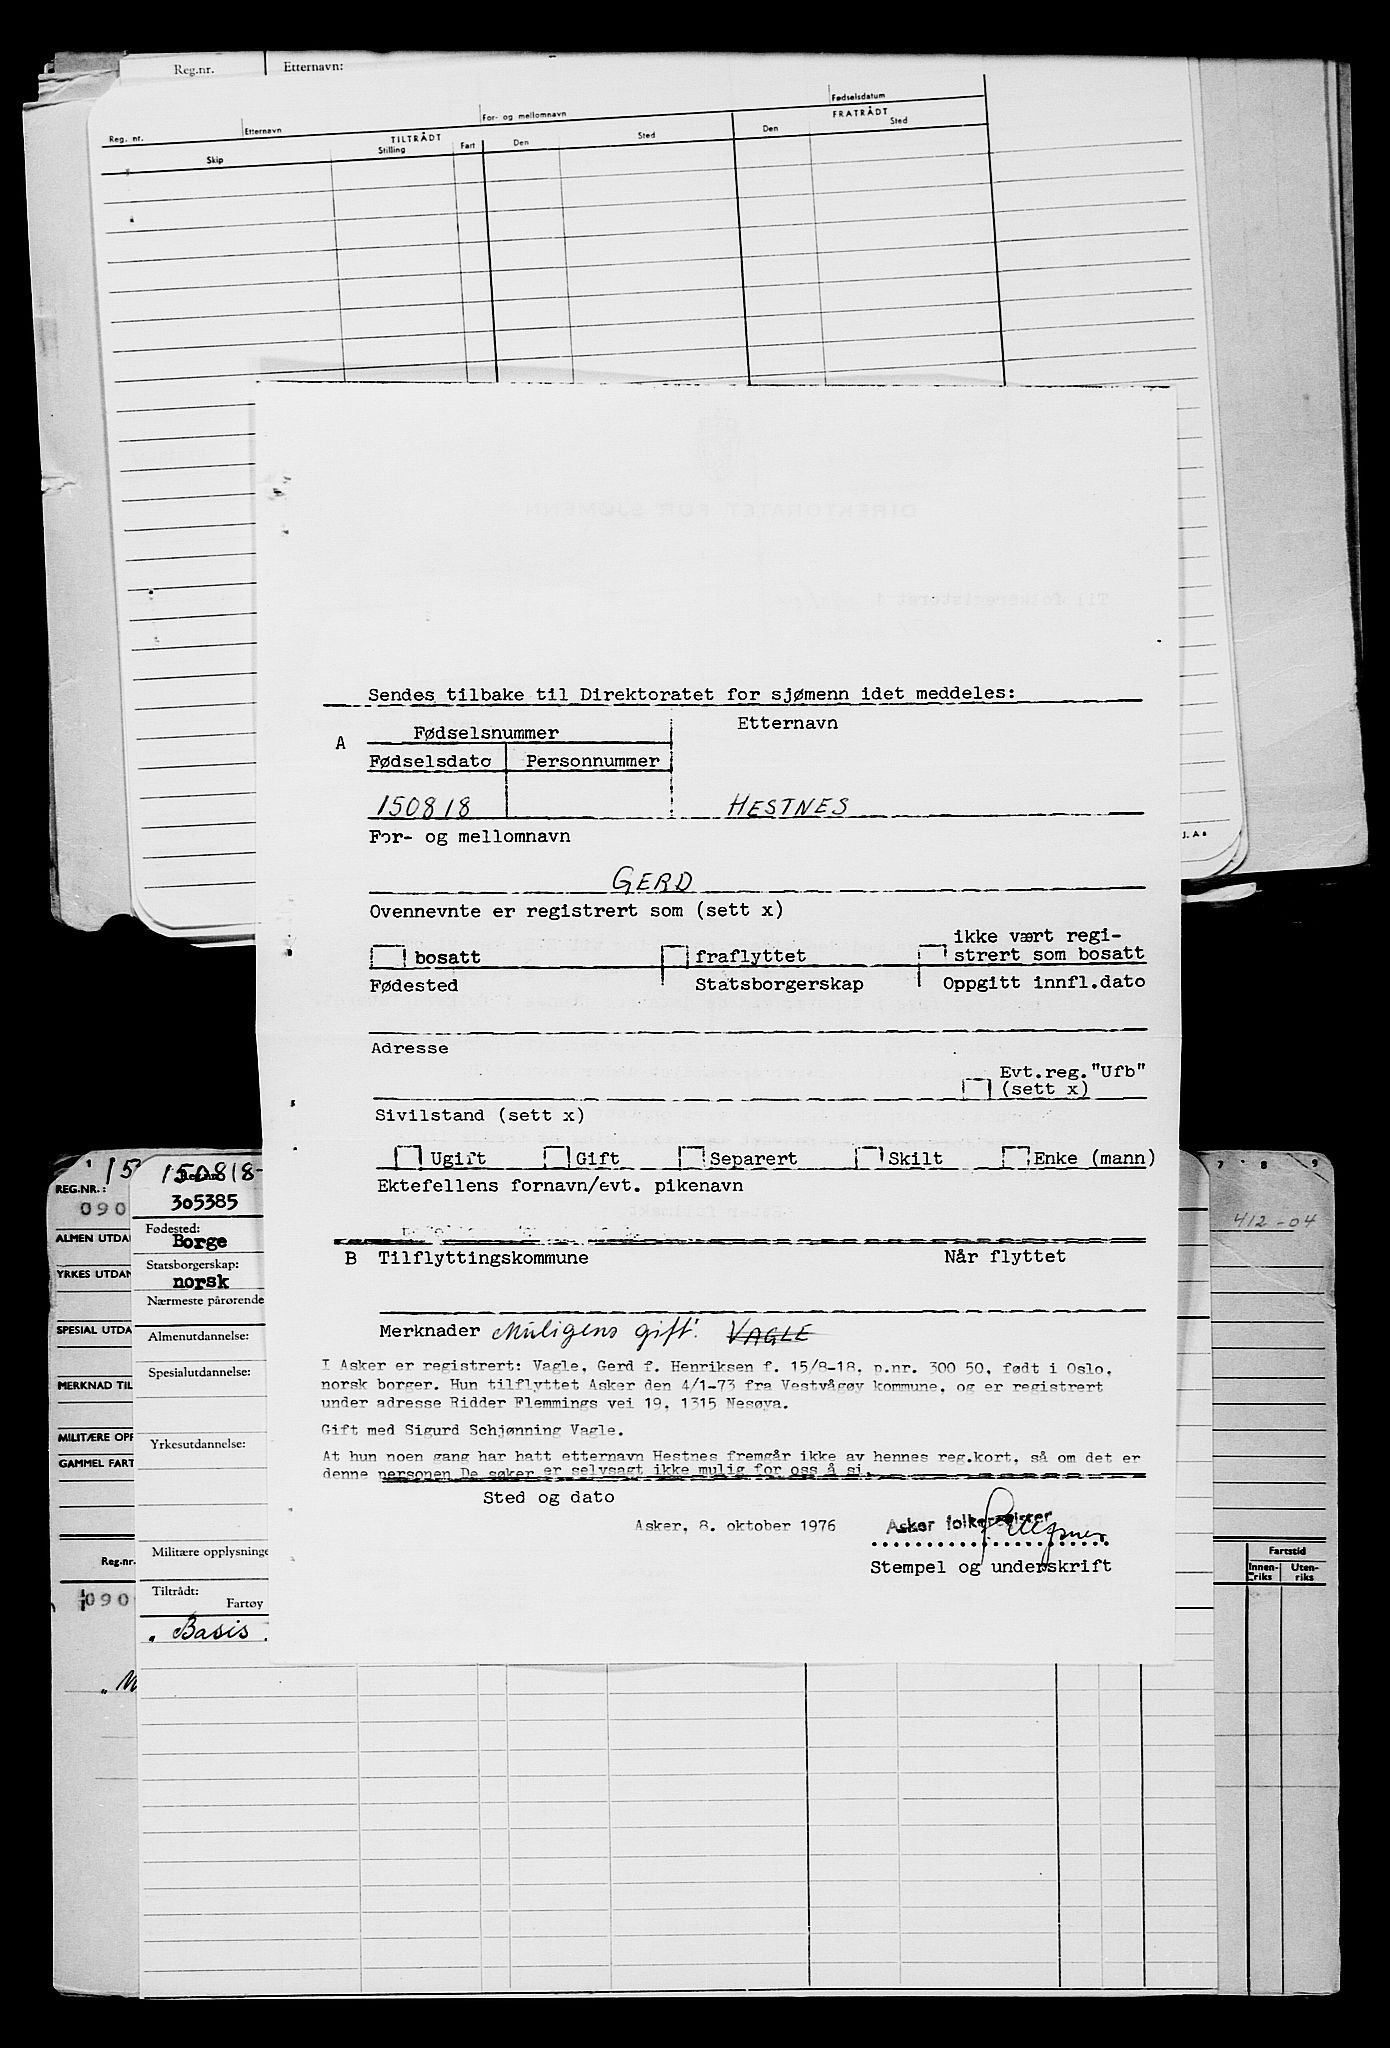 Reg.nr. Etternavn:
Reg. nr. Etternavn For- og mellomnavn Fødselsdatum
TILTRÅDT FRATRÅDT
Skip Stilling Fart Den Sted Den Sted
Sendes tilbake til Direktoratet for sjømenn idet meddeles:
A Fødselsnummer Etternavn
Fødselsdato Personnummer
150818 HESTNES
For- og mellomnavn
J. As
GERD
Ovennevnte er registrert som (sett x)
bosatt fraflyttet ikke vært regi-
strert som bosatt
Fødested Statsborgerskap Oppgitt innfl.dato
Adresse
Evt.reg. "Ufb"
(sett x)
Sivilstand (sett x)
Ugift Gift Separert Skilt Enke (mann)
Ektefellens fornavn/evt. pikenavn
B Tilflyttingskommune Når flyttet
Merknader Muligens gift: VAGLE
I Asker er registrert: Vagle, Gerd f. Henriksen f. 15/8-18, p.nr. 300 50, født i Oslo,
norsk borger. Hun tilflyttet Asker den 4/1-73 fra Vestvågøy kommune, og er registrert
under adresse Ridder Flemmings vei 19, 1315 Nesøya.
Gift med Sigurd Schjønning Vagle.
At hun noen gang har hatt etternavn Hestnes fremgår ikke av hennes reg.kort, så om det er
denne personen De søker er selvsagt ikke mulig for oss å si.
Sted og dato
Asker, 8. oktober 1976 Asker folkeregister
Stempel og underskrift
REG.NR.: 15
090
ALMEN UTDA
YRKES UTDAN
SPESIAL UTDA
MERKNAD TIL
MILITÆRE OPP
GAMMEL FART
Reg.nr.
090
150818-
Reg.nr.
305385
Fødested:
Borge
Statsborgerskap:
norsk
Nærmeste pårørende
Almenutdannelse:
Spesialutdannelse:
Yrkesutdannelse:
Militære opplysninge
Tiltrådt:
Fartøy
" Basis
" M
7 8 9
412-04
Fartstid
Innen-
riks
Uten-
riks